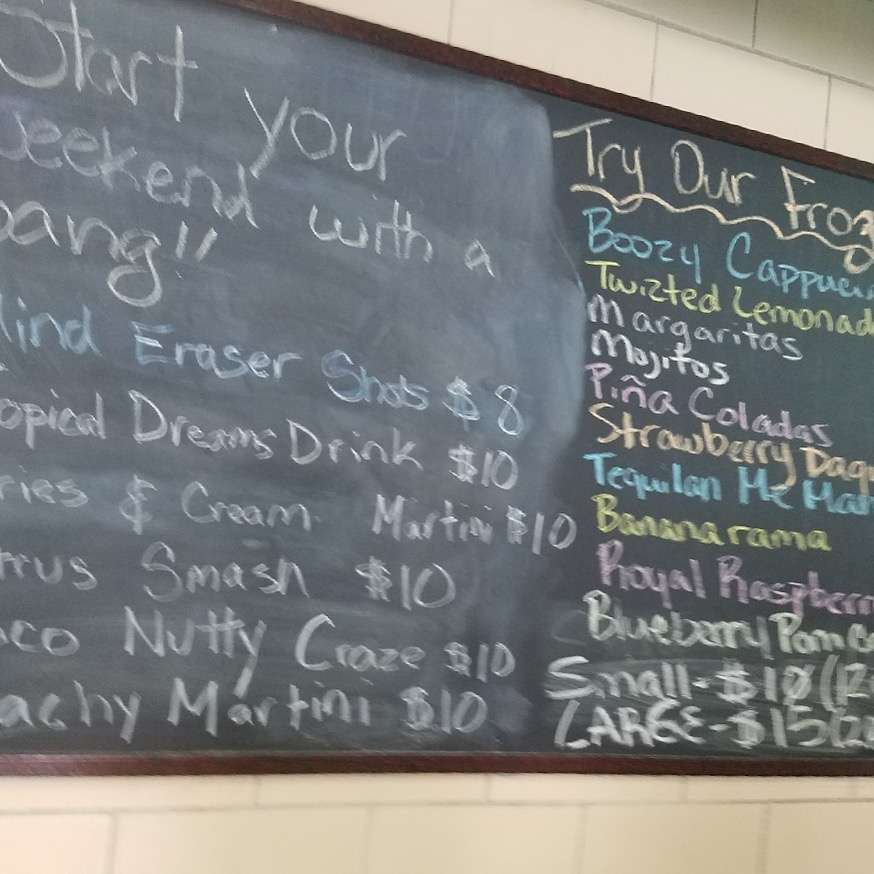 Start your
weekend with a
bang"
Mind Eraser Shots $8
Tropical Dreams Drink $10
ries & Cream Martini $10
rus Smash $10
oco Nutty Craze $10
achy Martini $10
Try Our Froz
Boozy Cappucc
Twizted Lemonad
Margaritas
Mojitos
Piña Coladas
Strawberry Daq
Tequilan Me Man
Bananarama
Royal Raspberr
Blueberry Pom
Small-$10 (12
LARGE-$15 (20